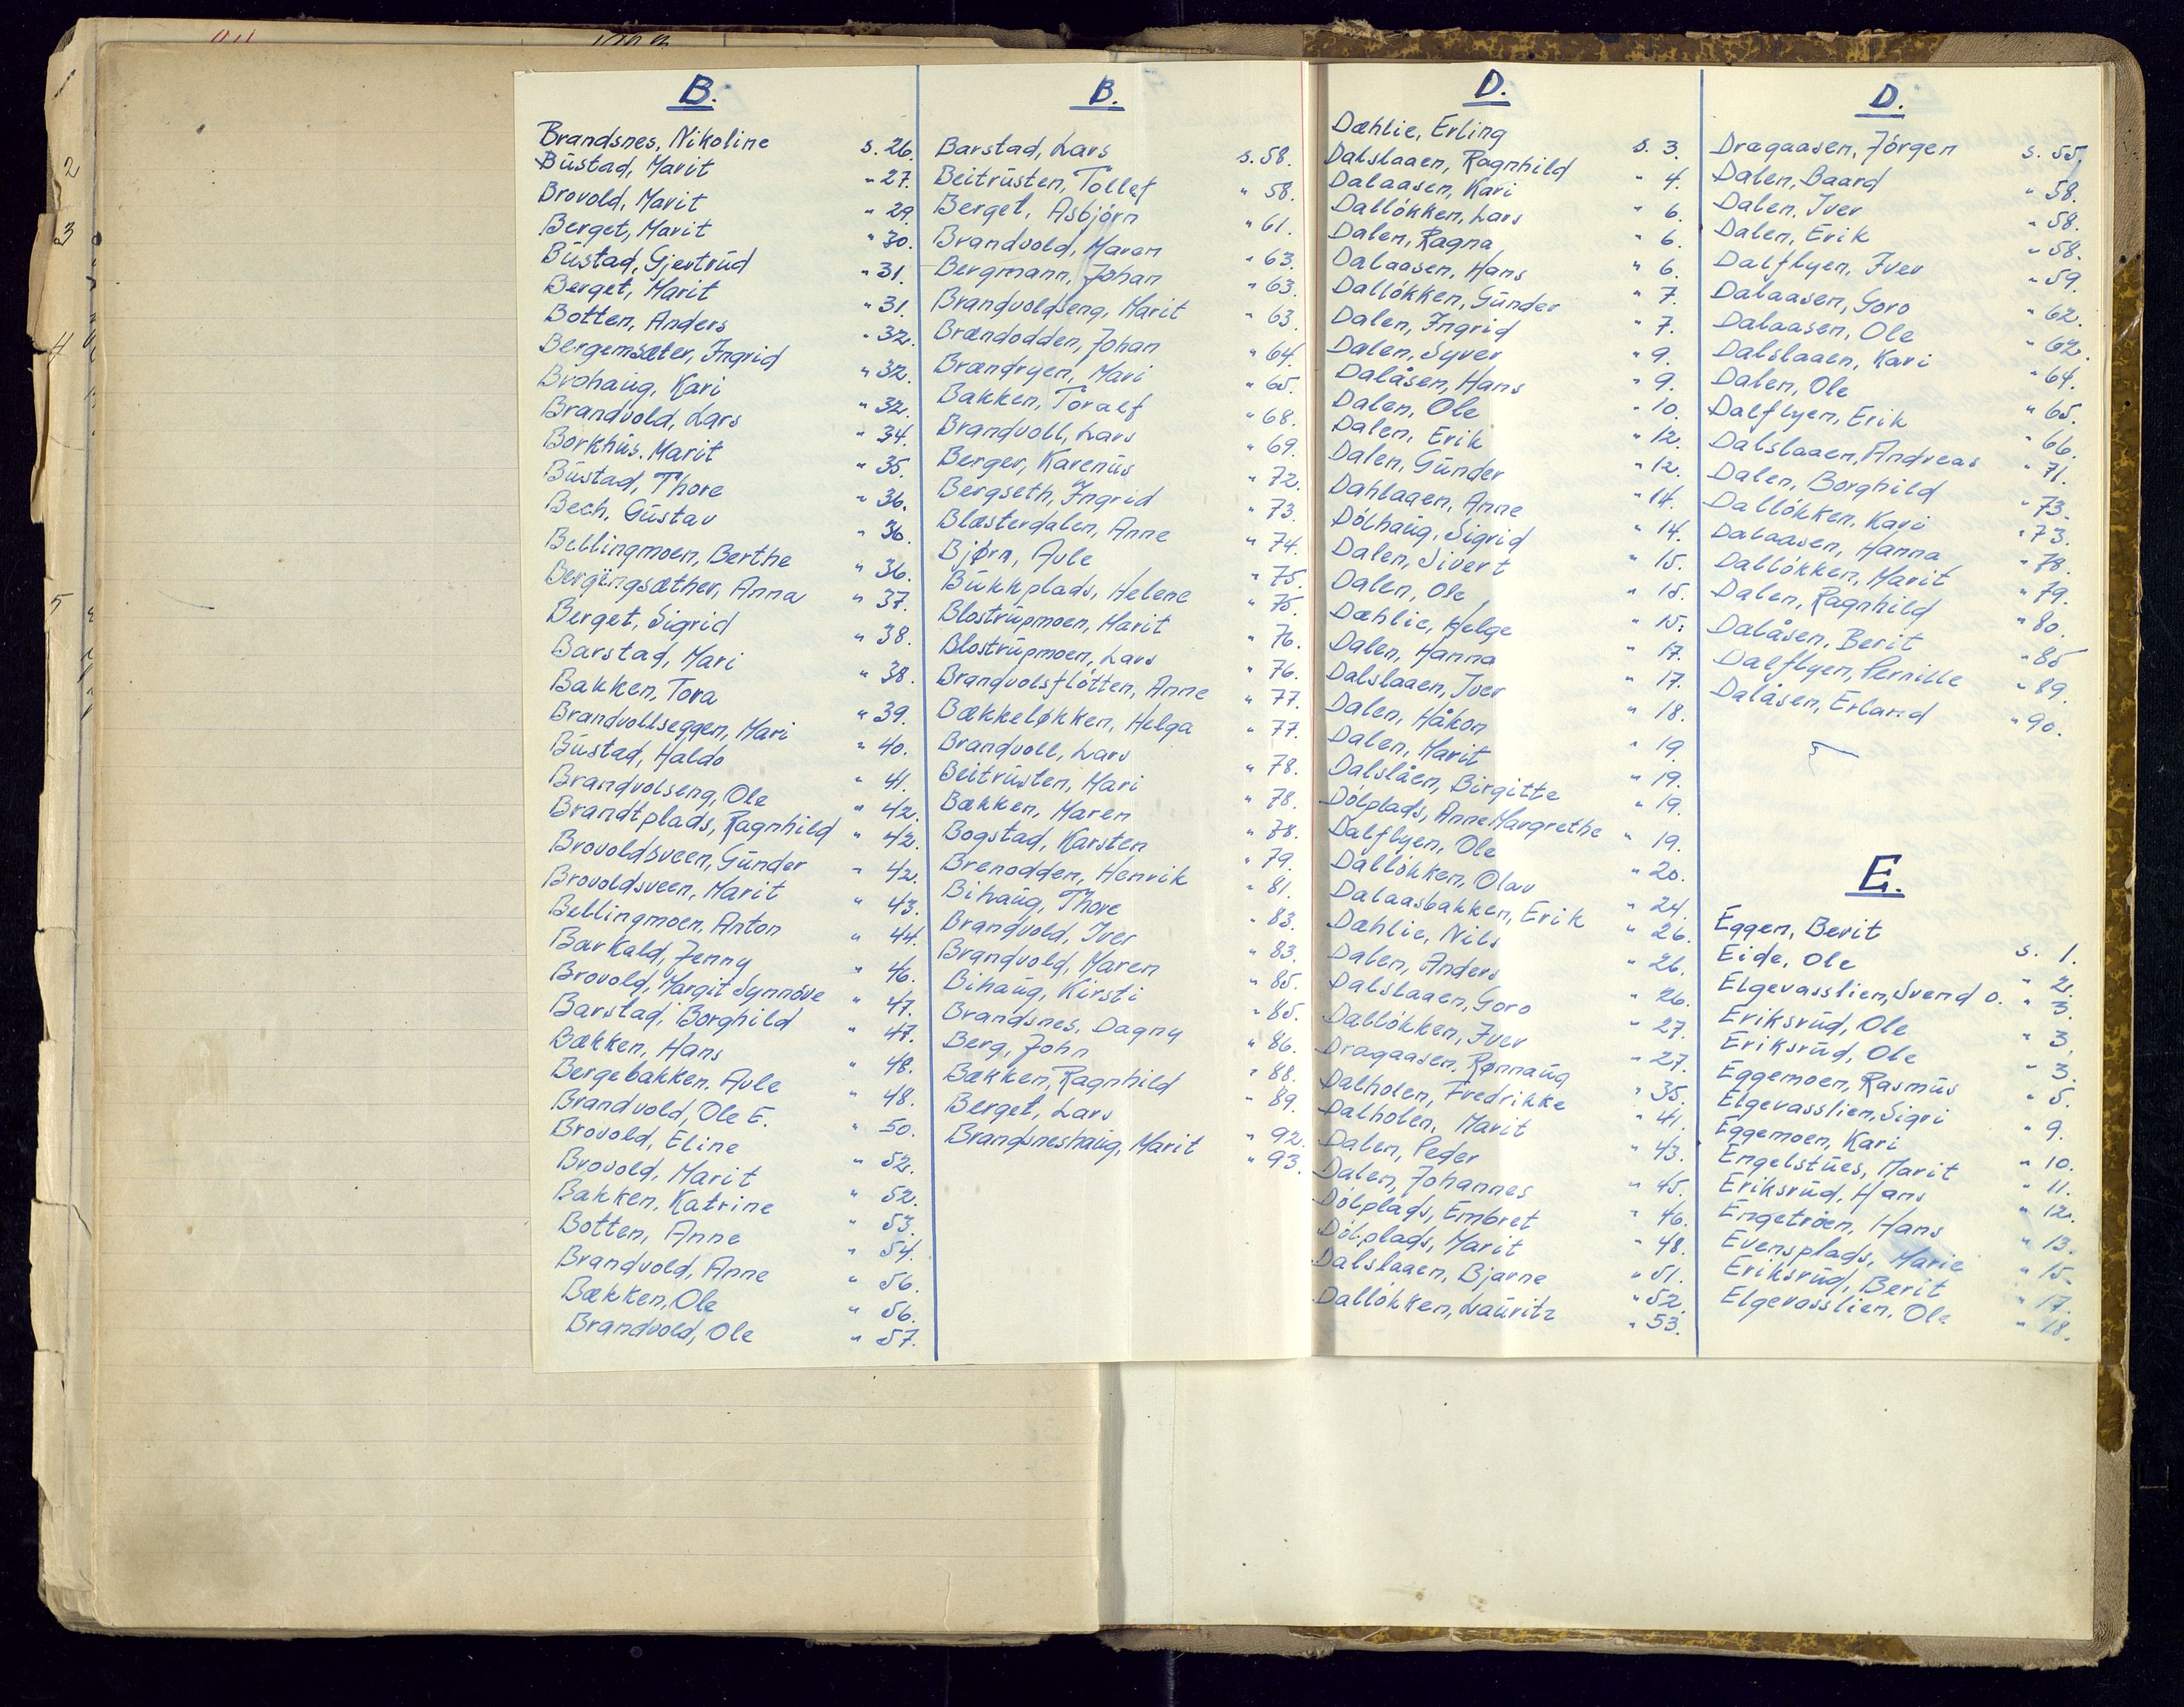 B.
Brandsnes, Nikoline s. 26.
Bustad, Marit " 27.
Brovold, Marit " 29.
Berget, Marit " 30.
Bustad, Gjertrud " 31.
Berget, Marit " 31.
Botten, Anders " 32.
Bergemsæter, Ingrid " 32.
Brohaug, Kari " 32.
Brandvold, Lars " 34.
Borkhus, Marit " 35.
Bustad, Thore " 36.
Bech, Gustav " 36.
Bellingmoen, Berthe " 36.
Bergengsæther, Anna " 37.
Berget, Sigrid " 38.
Barstad, Mari " 38.
Bakken, Tora " 39.
Brandvollseggen, Mari " 40.
Bustad, Haldo " 41.
Brandvolseng, Ole " 42.
Brandtplads, Ragnhild " 42.
Brovoldsveen, Gunder " 42.
Brovoldsveen, Marit " 43.
Bellingmoen, Anton " 44.
Barkald, Jenny " 46.
Brovold, Margit Synnöve " 47.
Barstad, Borghild " 47.
Bækken, Hans " 48.
Bergebakken, Avle " 48.
Brandvold, Ole E. " 50.
Brovold, Eline " 52.
Brovold, Marit " 52.
Bakken, Katrine " 53.
Botten, Anne " 54.
Brandvold, Anne " 56.
Bækken, Ole " 56.
Brandvold, Ole " 57.
B.
Barstad, Lars s. 58.
Beitrusten, Tollef " 58.
Berget, Asbjörn " 61.
Brandvold, Maren " 63.
Bergmann, Johan " 63.
Brandvoldseng, Marit " 63.
Brændodden, Johan " 64.
Brændryen, Mari " 65.
Bakken, Toralf " 68.
Brandvoll, Lars " 69.
Berger, Karenus " 72.
Bergseth, Ingrid " 73.
Blæsterdalen, Anne " 74.
Bjørn, Avle " 75.
Bukkplads, Helene " 75.
Blostrupmoen, Marit " 76.
Blostrupmoen, Lars " 76.
Brandvolsflötten, Anne " 77.
Bækkeløkken, Helga " 77.
Brandvoll, Lars " 78.
Beitrusten, Mari " 78.
Bækken, Maren " 78.
Bogstad, Karsten " 79.
Brenodden, Henrik " 81.
Bihaug, Thore " 83.
Brandvold, Iver " 83.
Brandvold, Maren " 85.
Bihaug, Kirsti " 85.
Brandsnes, Dagny " 86.
Berg, John " 88.
Bækken, Ragnhild " 89.
Berget, Lars " 92.
Brandsneshaug, Marit " 93.
D.
Dæhlie, Erling s. 3.
Dalslaaen, Ragnhild " 4.
Dalaasen, Kari " 6.
Dallökken, Lars " 6.
Dalen, Ragna " 6.
Dalaasen, Hans " 7.
Dallökken, Gunder " 7.
Dalen, Ingrid " 9.
Dalen, Syver " 9.
Dalåsen, Hans " 10.
Dalen, Ole " 12.
Dalen, Erik " 12.
Dalen, Gunder " 14.
Dahlaaen, Anne " 14.
Dölhaug, Sigrid " 15.
Dalen, Sivert " 15.
Dalen, Ole " 15.
Dæhlie, Helge " 17.
Dalen, Hanna " 17.
Dalslaaen, Iver " 18.
Dalen, Håkon " 19.
Dalen, Marit " 19.
Dalslåen, Birgitte " 19.
Dölplads, Anne Margrethe " 19.
Dalflyen, Ole " 20.
Dallökken, Olav " 24.
Dalaasbakken, Erik " 26.
Dæhlie, Nils " 26.
Dalen, Anders " 26.
Dalslaaen, Goro " 27.
Dallökken, Iver " 27.
Dragaasen, Rønnaug " 35.
Dalholen, Fredrikke " 41.
Dalholen, Marit " 43.
Dalen, Peder " 45.
Dalen, Johannes " 46.
Dölplads, Embret " 48.
Dölplads, Marit " 51.
Dalslaaen, Bjarne " 52.
Dallökken, Lauritz " 53.
D.
Dragaasen, Jörgen s. 55.
Dalen, Baard " 58.
Dalen, Iver " 58.
Dalen, Erik " 58.
Dalflyen, Iver " 59.
Dalaasen, Goro " 62.
Dalaasen, Ole " 62.
Dalslaaen, Kari " 64.
Dalen, Ole " 65.
Dalflyen, Erik " 66.
Dalslaaen, Andreas " 71.
Dalen, Borghild " 73.
Dallökken, Kari " 73.
Dalaasen, Hanna " 78.
Dallökken, Marit " 79.
Dalen, Ragnhild " 80.
Dalåsen, Berit " 85
Dalflyen, Pernille " 89.
Dalåsen, Erland " 90.
E.
Eggen, Berit s. 1.
Eide, Ole " 2.
Elgevasslien, Svend O. " 3.
Eriksrud, Ole " 3.
Eriksrud, Ole " 3.
Eggemoen, Rasmus " 5.
Elgevasslien, Sigri " 9.
Eggemoen, Kari " 10.
Engelstues, Marit " 11.
Eriksrud, Hans " 12.
Engetrøen, Hans " 13.
Evensplads, Marie " 15.
Eriksrud, Berit " 17.
Elgevasslien, Ole " 18.
2
3
4
5